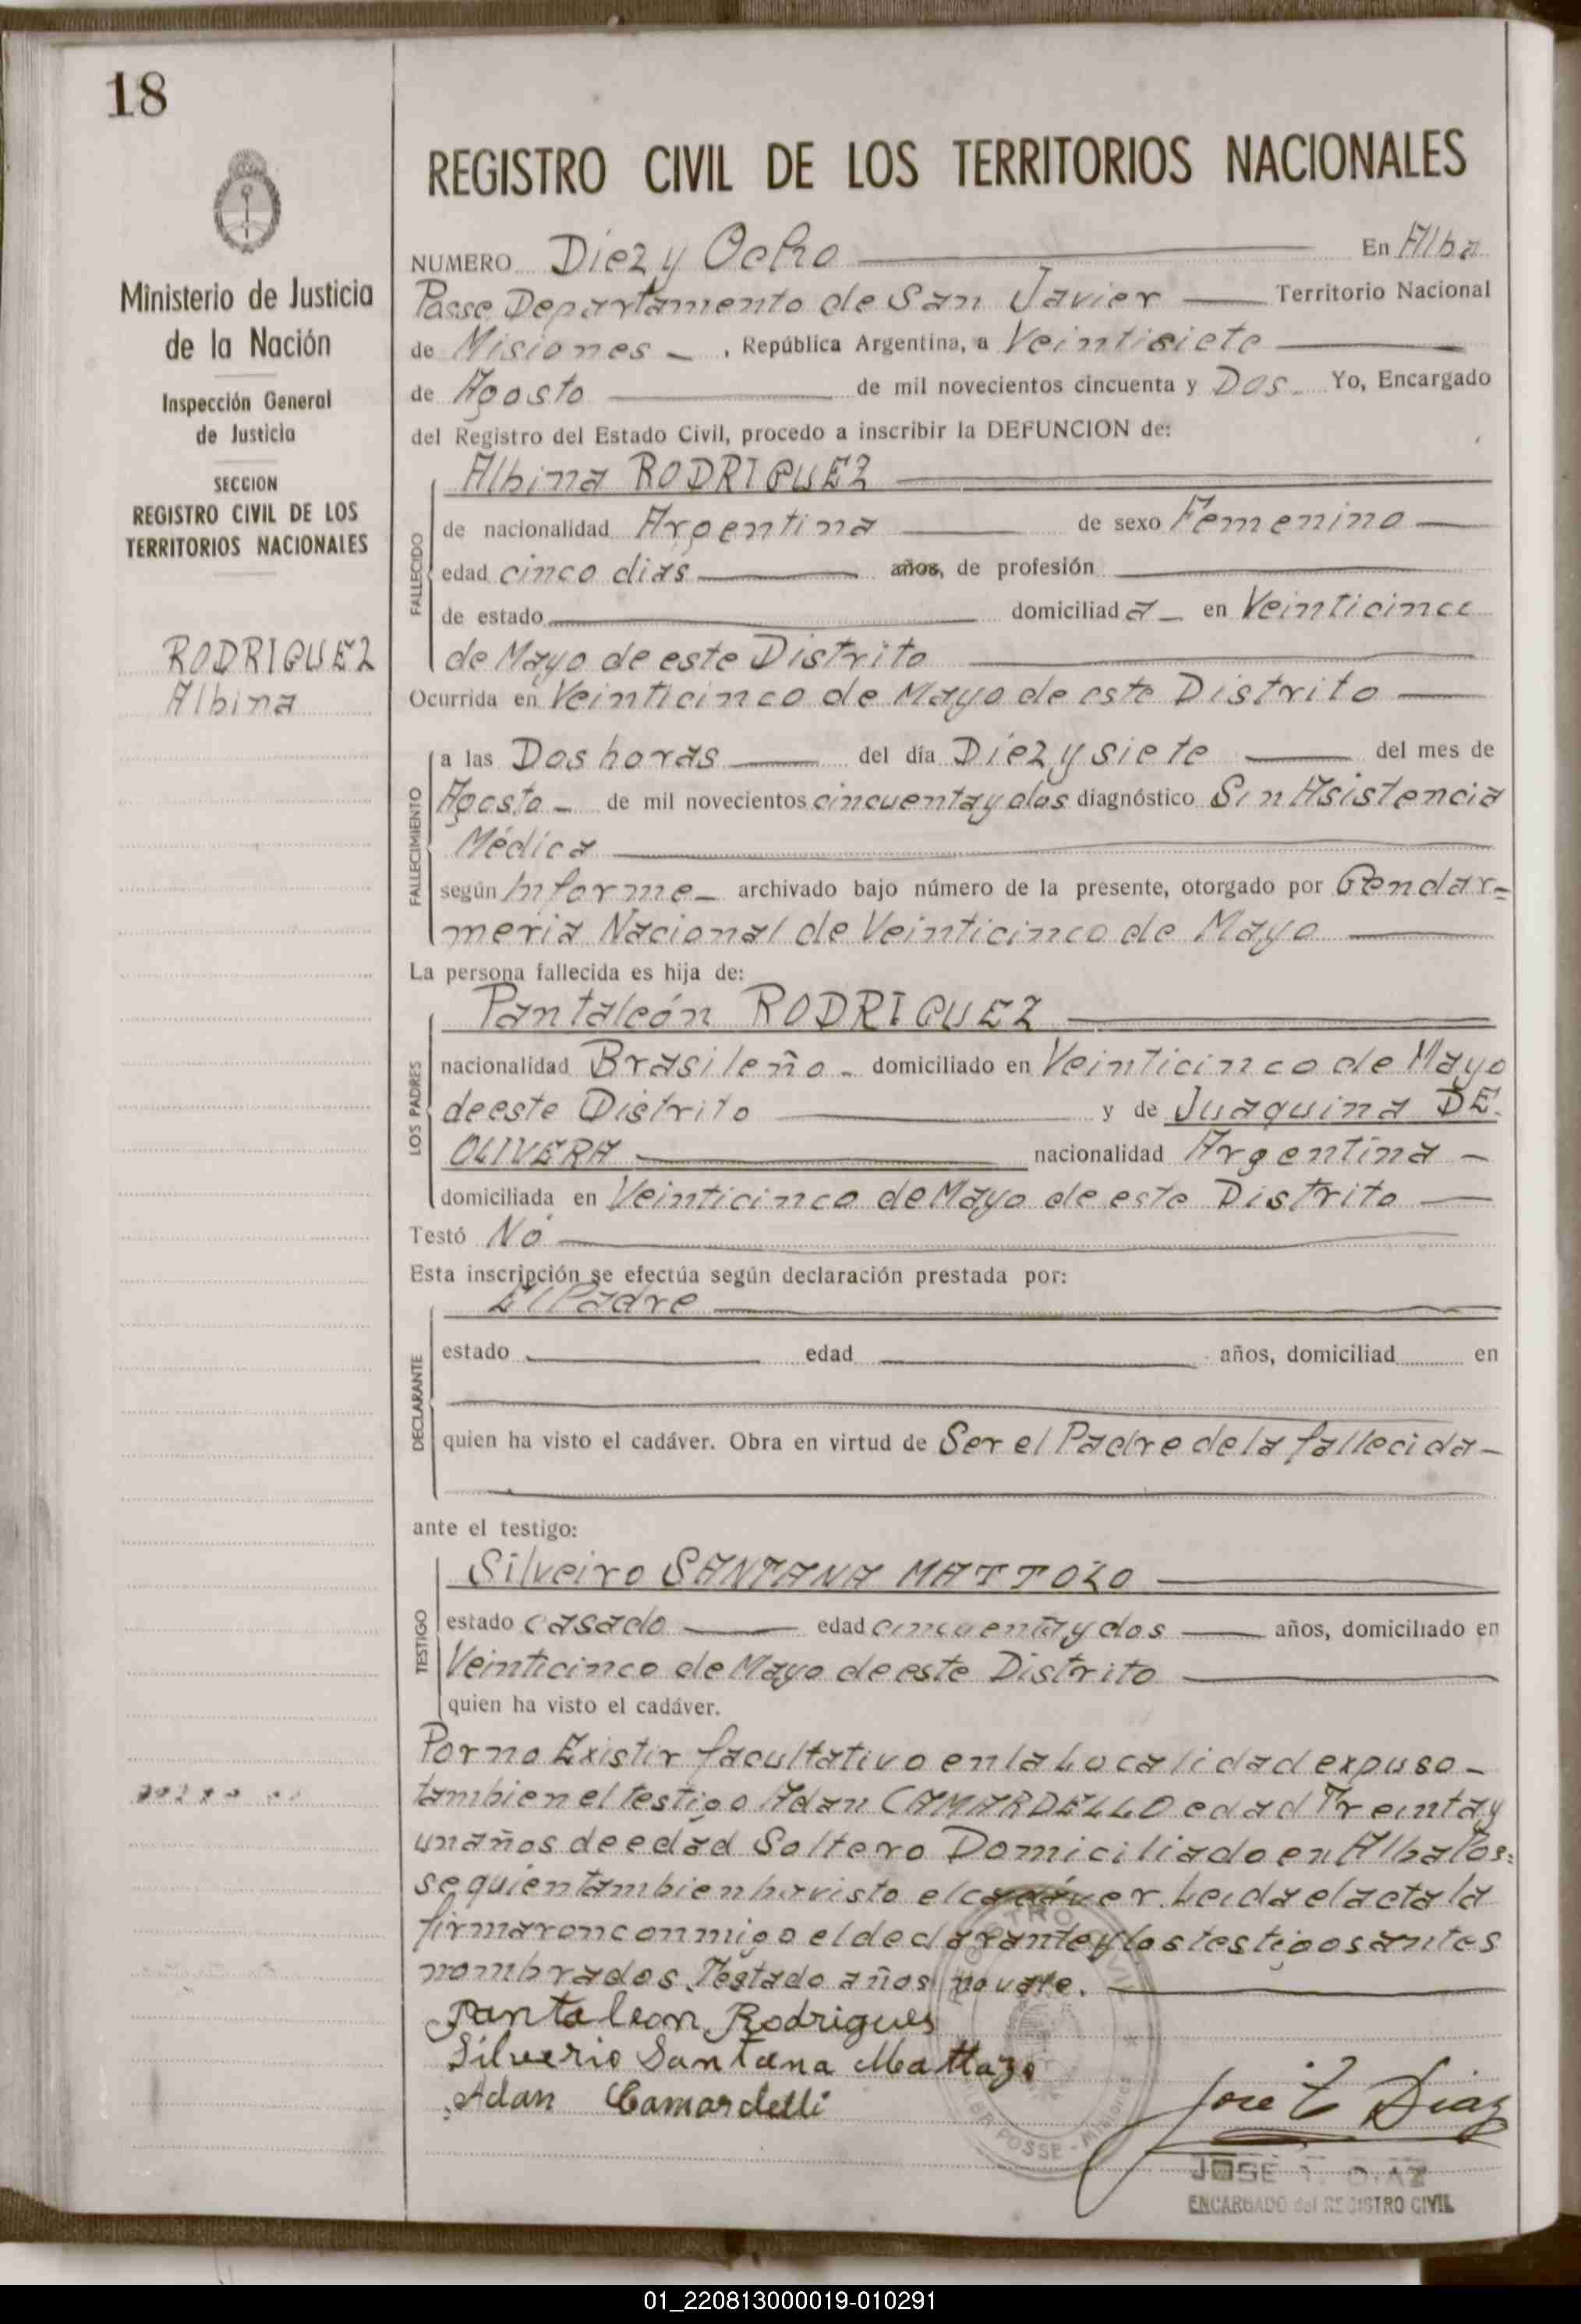 18
Ministerio de Justicia
de la Nación
Inspección General
de Justicia
SECCION
REGISTRO CIVIL DE LOS
TERRITORIOS NACIONALES
RODRIGUEZ
Albina
REGISTRO CIVIL DE LOS TERRITORIOS NACIONALES
NUMERO Diez y Ocho En Alba
Posse Departamento de San Javier Territorio Nacional
de Misiones, República Argentina, a Veintisiete
de Agosto de mil novecientos cincuenta y Dos Yo, Encargado
del Registro del Estado Civil, procedo a inscribir la DEFUNCION de:
FALLECIDO
Albina RODRIGUEZ
de nacionalidad Argentina de sexo Femenino
edad cinco dias años, de profesión
de estado domiciliada en Veinticinco
de Mayo de este Distrito
Ocurrida en Veinticinco de Mayo de este Distrito
FALLECIMIENTO
a las Dos horas del día Diez y siete del mes de
Agosto de mil novecientos cincuenta y dos diagnóstico Sin Asistencia
Médica
según Informe archivado bajo número de la presente, otorgado por Gendar=
meria Nacional de Veinticinco de Mayo
La persona fallecida es hija de:
LOS PADRES
Pantaleón RODRIGUEZ
nacionalidad Brasileño domiciliado en Veinticinco de Mayo
de este Distrito y de Juaquina DE
OLIVERA nacionalidad Argentina
domiciliada en Veinticinco de Mayo de este Distrito
Testó Nó
Esta inscripción se efectúa según declaración prestada por:
DECLARANTE
El Padre
estado edad años, domiciliad en
quien ha visto el cadáver. Obra en virtud de Ser el Padre de la fallecida
ante el testigo:
TESTIGO
Silveiro SANTANA MATTOZO
estado casado edad cincuenta y dos años, domiciliado en
Veinticinco de Mayo de este Distrito
quien ha visto el cadáver.
Por no Existir facultativo en la Localidad expuso
tambien el testigo Adan CAMARDELLO edad Treinta y
un años de edad Soltero Domiciliado en Alba Pos=
se quien tambien ha visto el cadáver. Leida el acta la
firmaron conmigo el declarante y los testigos antes
nombrados. Testado años no vale.
Pantaleon Rodrigues
Silverio Santana Mattozo
Adan Camardelli
Jose T Diaz
JOSE T. DIAZ
ENCARGADO del REGISTRO CIVIL
01_220813000019-010291